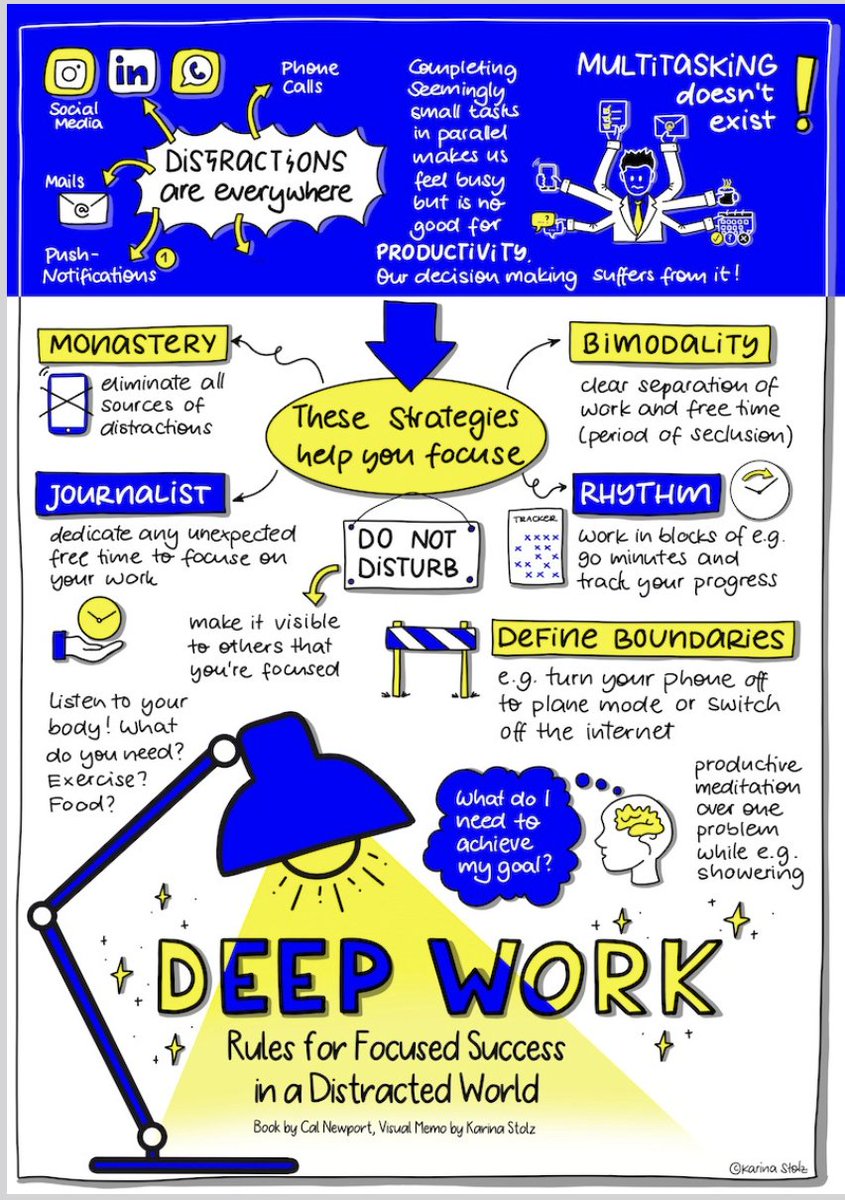 in
Social
Media
Phone
Calls
DISTRACTIONS
are everywhere
Mails
@
Push-
Notifications
1
Completing
Seemingly
small tasks
in parallel
makes us
feel busy
but is no
good for
PRODUCTIVITY.
Our decision making suffers from it!
MULTITASKING
doesn't
exist
!
MONASTERY
eliminate all
sources of
distractions
These Strategies
help you focuse
BIMODALITY
clear separation of
work and free time
(period of seclusion)
JOURNALIST
dedicate any unexpected
free time to focuse on
your work
DO NOT
DISTURB
make it visible
to others that
you're focused
RHYTHM
TRACKER
work in blocks of e.g.
90 minutes and
track your progress
DEFINE BOUNDARIES
e.g. turn your phone off
to plane mode or switch
off the internet
Listen to your
body! What
do you need?
Exercise?
Food?
What do I
need to
achieve
my goal?
productive
meditation
over one
problem
while e.g.
showering
DEEP WORK
Rules for Focused Success
in a Distracted World
Book by Cal Newport, Visual Memo by Karina Stolz
©Karina Stolz